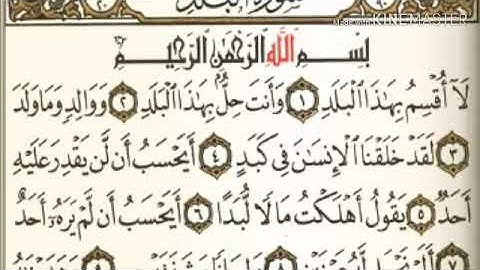 سُورَةُ الْبَلَدِ
Made with KINEMASTER
بِسْمِ اللَّهِ الرَّحْمَٰنِ الرَّحِيمِ
لَآ أُقْسِمُ بِهَٰذَا الْبَلَدِ ١ وَأَنتَ حِلٌّۢ بِهَٰذَا الْبَلَدِ ٢ وَوَالِدٍ وَمَا وَلَدَ
٣ لَقَدْ خَلَقْنَا الْإِنسَٰنَ فِي كَبَدٍ ٤ أَيَحْسَبُ أَن لَّن يَقْدِرَ عَلَيْهِ
أَحَدٌ ٥ يَقُولُ أَهْلَكْتُ مَالًا لُّبَدًا ٦ أَيَحْسَبُ أَن لَّمْ يَرَهُۥٓ أَحَدٌ
٧ أَلَمْ نَجْعَل لَّهُۥ عَيْنَيْنِ ٨ وَلِسَانًا وَشَفَتَيْنِ ٩